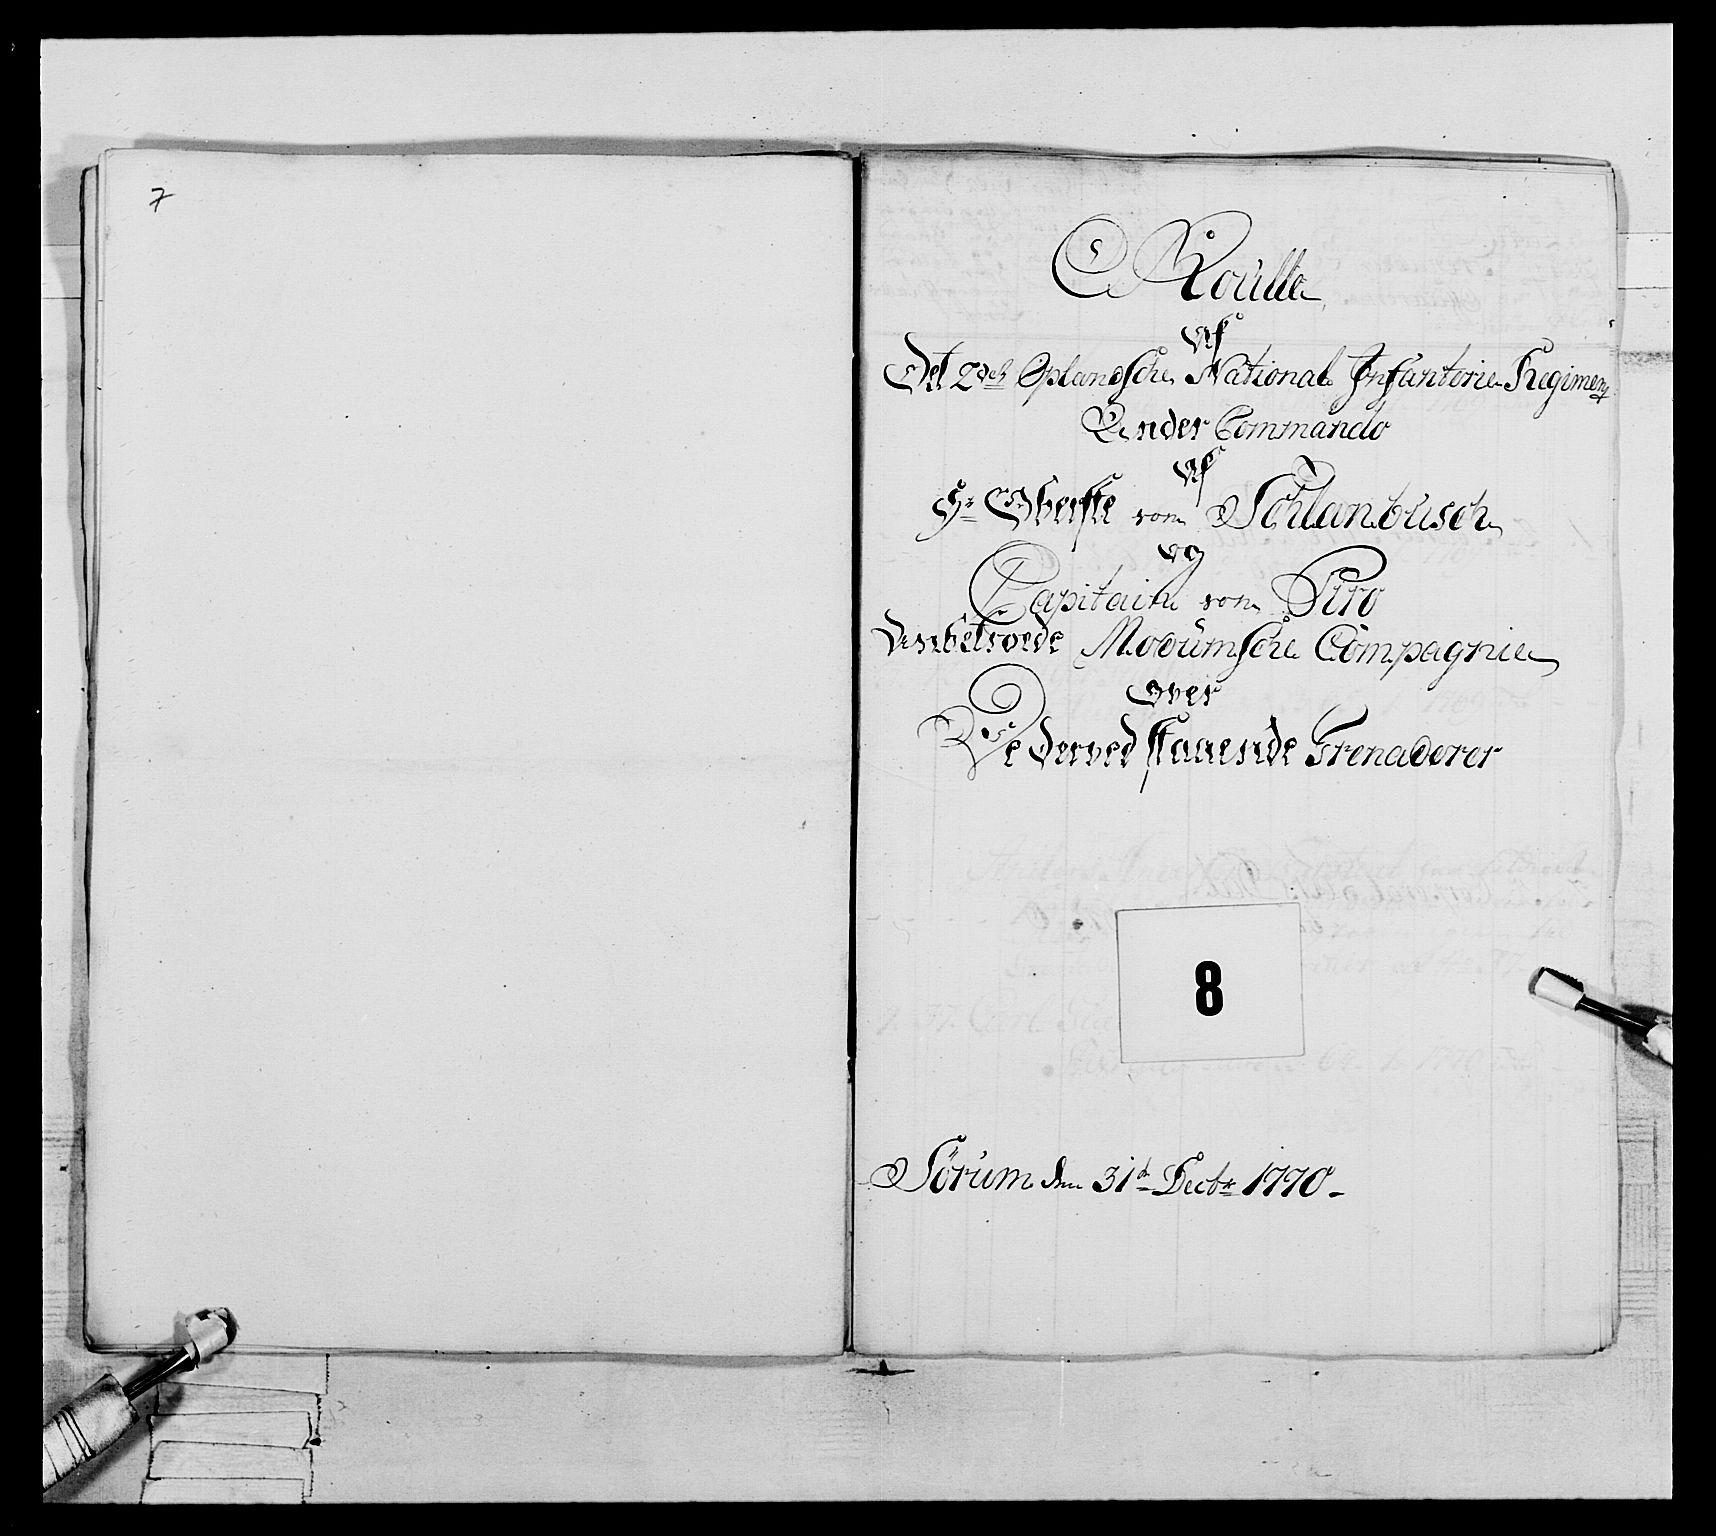 7
Roulle
Af
Det 2det Oplandsche National Infanterie Regiment
Under Commando
Af
Hr Oberste von Schlanbusch
og
Capitain von Piro
Anbetroede Modumsche Compagnie
over
De derved staaende Grenaderer
8
Sörum den 31te Decbr 1770